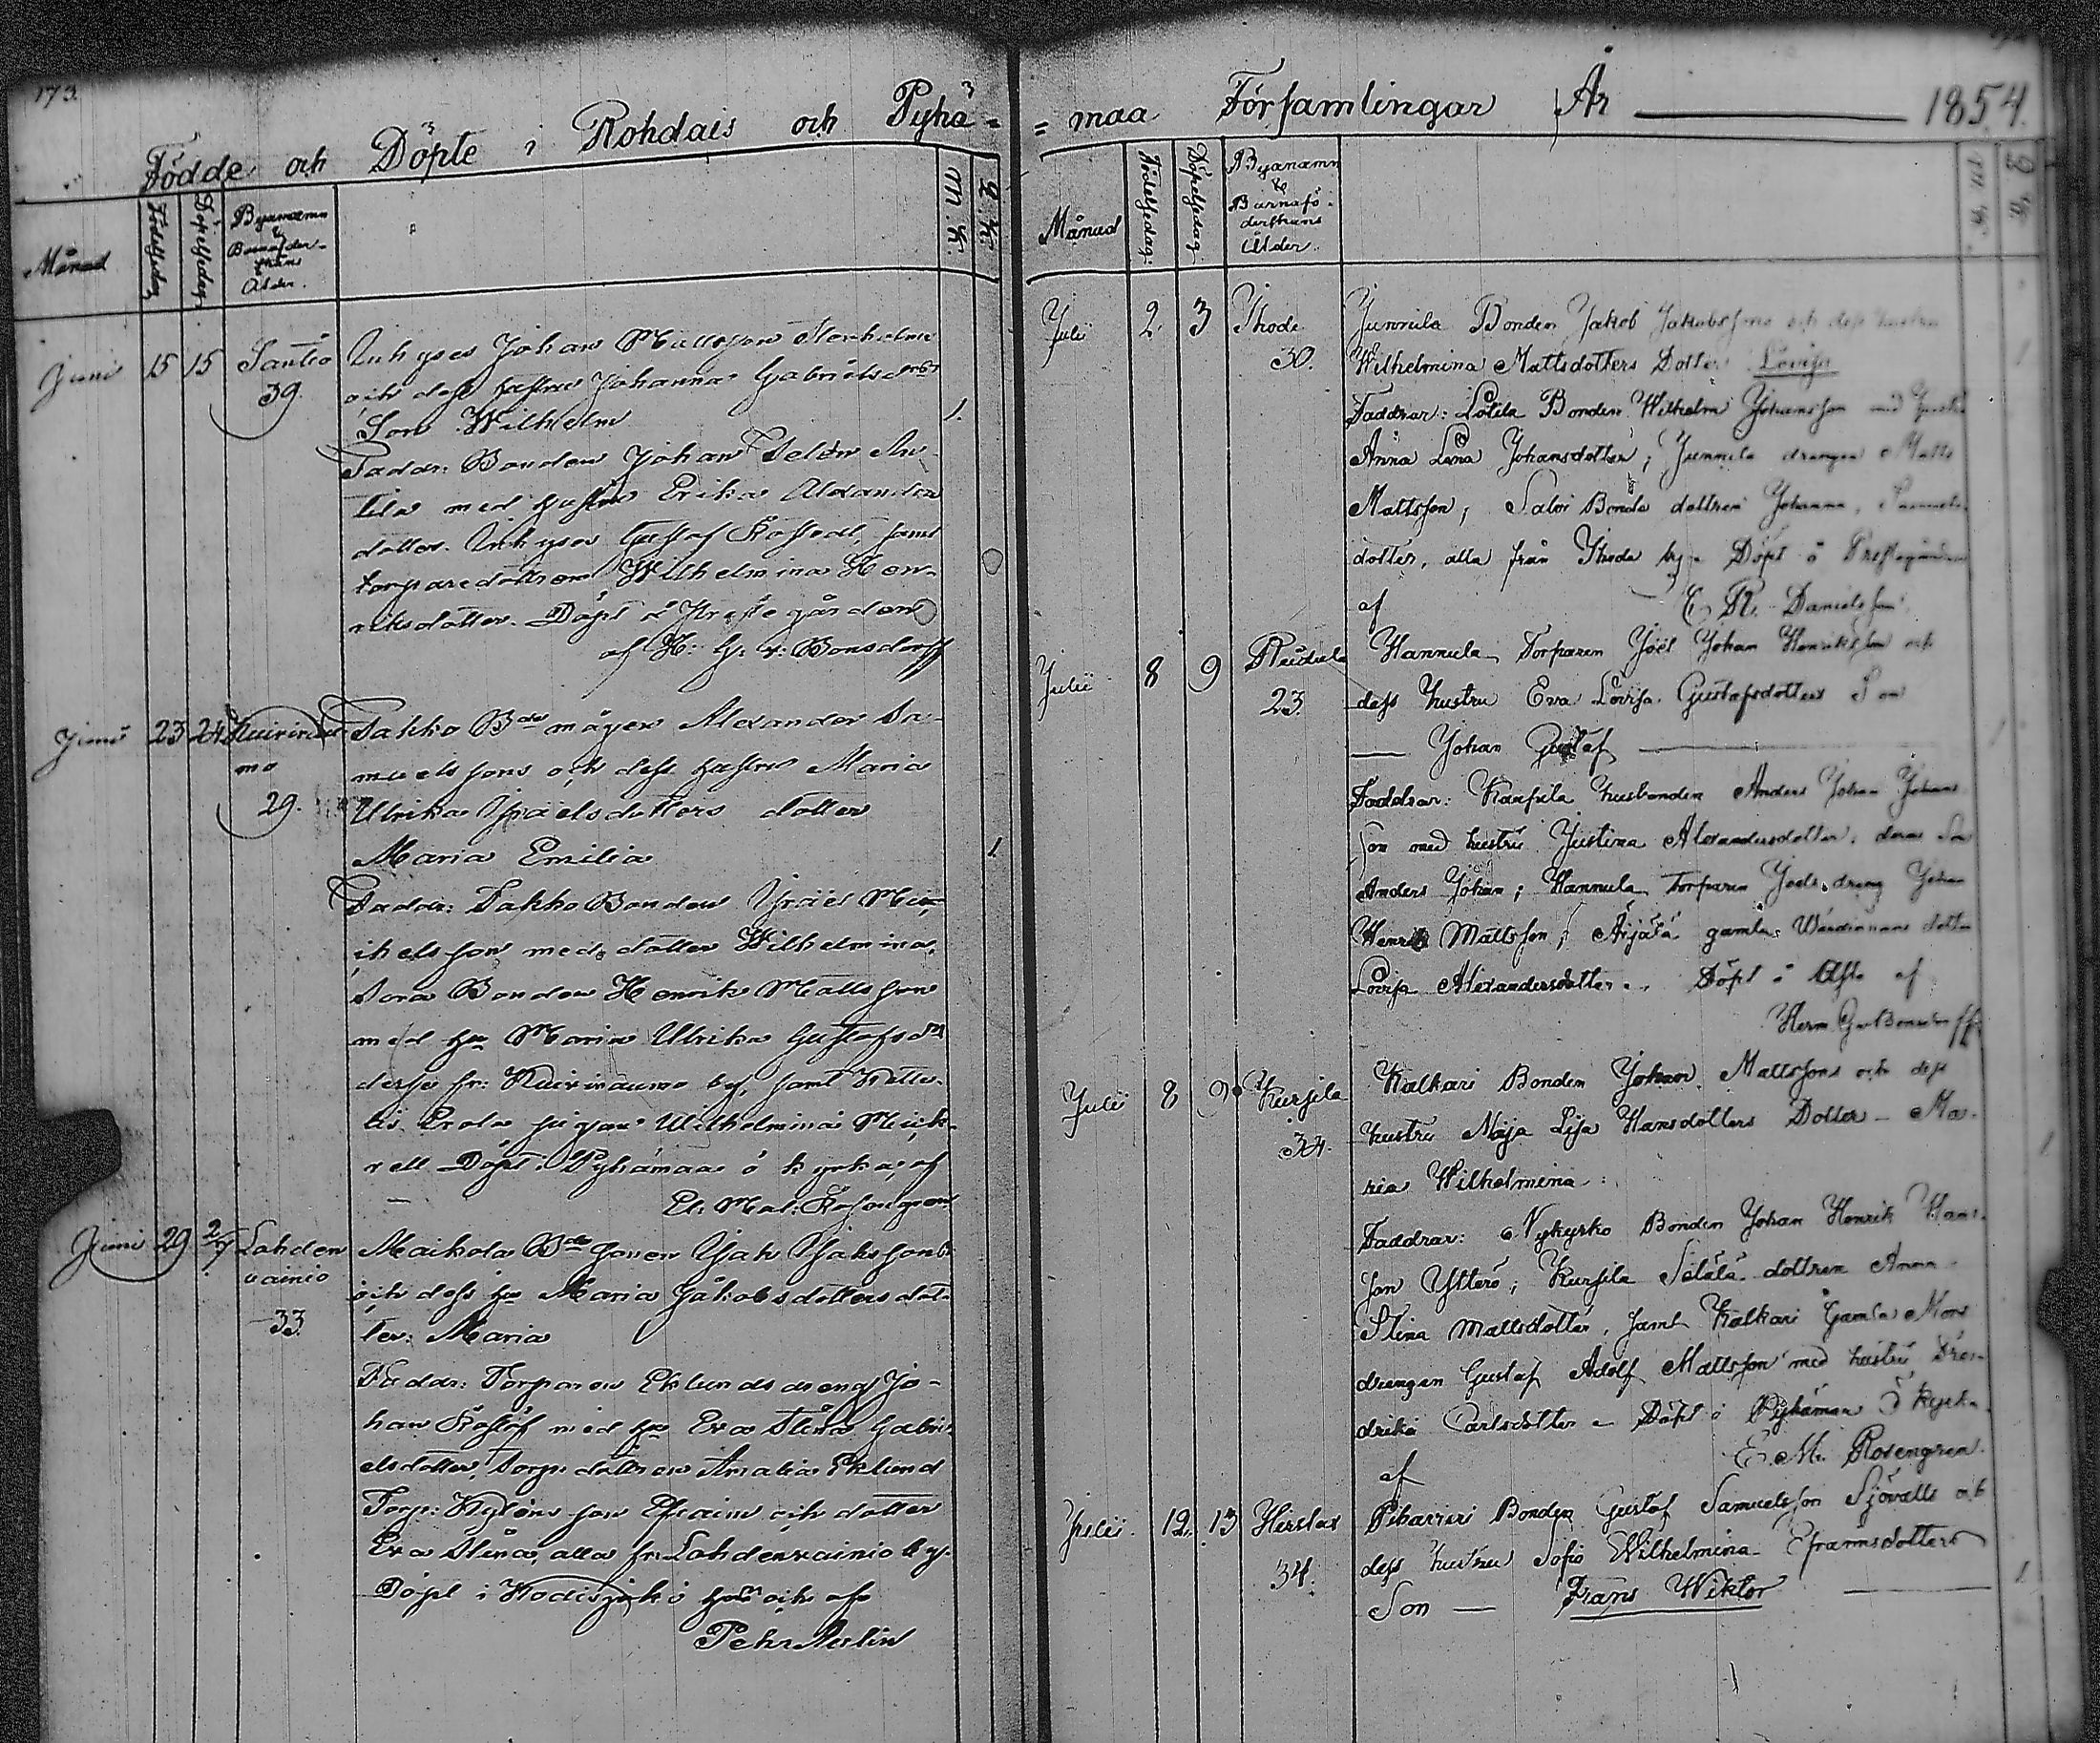 173.
Födde och Döpte i Rohdais och Pyhä=
Månad
Födelsedag
Döpelsedag
Byanamn
&
Barnaföder-
skans
Ålder.
M. K.
Q. K.
Juni 15 15 Santio
39.
Inhyses Johan Mattsson Stenholms
och dess hustru Johanna Gabrielsdrs
Son Wilhelm
1.
Faddr: Bonden Johan Selén An-
tila med hustru Erika Alexanders
dotter. Inhyses Gustaf Rostedt, samt
torparedottren Wilhelmina Hen-
riksdotter. Döpt å Prestegården
af H: G: v: Bonsdorff
Juni 23 24 Kuivirau
mo
29.
Takko Bde mågen Alexander Sa-
muelssons och dess hustru Maria
Ulrika Israelsdotters dotter
Maria Emilia
1
Faddr: Takko Bonden Israel Mi-
ichelsson med dotter Wilhelmina.
Sora Bonden Henrik Mattsson
med hu Maria Ulrika Gustafsdr
desse fr: Kuiviraumo by, samt
Erola pigan Wilhelmina
Döpt i Pyhämaa ö kyrka, af
El: Mat: Rosengren
Juni 29 2/7 Lahden
vainio
33.
Maikola Bde sonen Isak Isakssons
och dess hu Maria Jakobsdotters dot-
ter: Maria
Faddr: Torparen Eklunds dreng Jo-
han Roslöf med hu Eva Stina Gabri-
elsdotter, Torp: dottren Amalia Eklund
Torp: Nyléns son Efraim och dotter
Eva Stina, alla fr: Lahdenvainio by.
Döpt i Kodisjoki och af
Pehr Aulin
=maa Församlingar År 1854.
Månad
Födelsedag.
Döpelsedag
Byanamn
&
Barnafö-
derskans
Ålder.
M. K.
Q. K.
Julii 2 3 Ihode
30.
Junnila Bonden Jakob Jakobssons och dess hustru
Wilhelmina Mattsdotters Dotter Lovisa
1
Faddrar: Lotila Bonden Wilhelm Johansson med hustru
Anna Lena Johansdotter; Junnila drengen Matts
Mattsson; Salvi Bonde dottren Johanna,
dotter, alla från Ihode by. Döpt å Prestegården
af E. R. Danielsson
Julii 8 9
23.
Hannula Torparen Joel Johan Henriksson och
dess hustru Eva Lovisa Gustafsdotters Son
— Johan Gustaf —
Faddrar: Husbonden Anders Johan Johans
son med hustru Justina Alexandersdotter, deras Son
Anders Johan; Hannula Torparen Joels dreng Johan
Henrik Mattsson; Äijälä gamla Wärdinnans dotter
Lovisa Alexandersdotter. Döpt i af
Herm. G v Bonsdorff
Julii 8 9 Kursila
34.
Kalkari Bonden Johan Mattssons och dess
hustru Maja Lisa Hansdotters Dotter — Ma-
ria Wilhelmina:
1
Faddrar: Nykyrko Bonden Johan Henrik Hans-
son Ytterö; Kursila Sälälä dottren Anna
Stina Mattsdotter, samt Kalkari Gamla Mors
drengen Gustaf Adolf Mattsson med hustru Fre-
drika Carlsdotter — Döpt i Pyhämaa Ö Kyrka
af E. M. Rosengren.
Julii. 12. 13 Hirslax
34.
Pikarini Bonden Gustaf Samuelsson Sjövalls och
dess hustru Sofia Wilhelmina Eframsdotters
Son — Frans Wiktor —
1